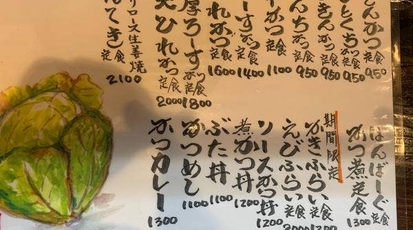 んかつ定食 950
んちかつ定食 950
きんかつ定食 950
ーかつ定食 1100
ろーすかつ定食 1400
れかつ定食 1600
厚ろーすかつ定食 1800
大ひれかつ定食 2000
リロース生姜焼
んてき定食 2100
はんばーぐ定食
かつ煮定食 1300
期間限定
かきふらい定食
えびふらい定食 2000
ソースかつ丼 1200
煮かつ丼 1200
ぶた丼 1100
かつめし 1100
かつカレー 1300